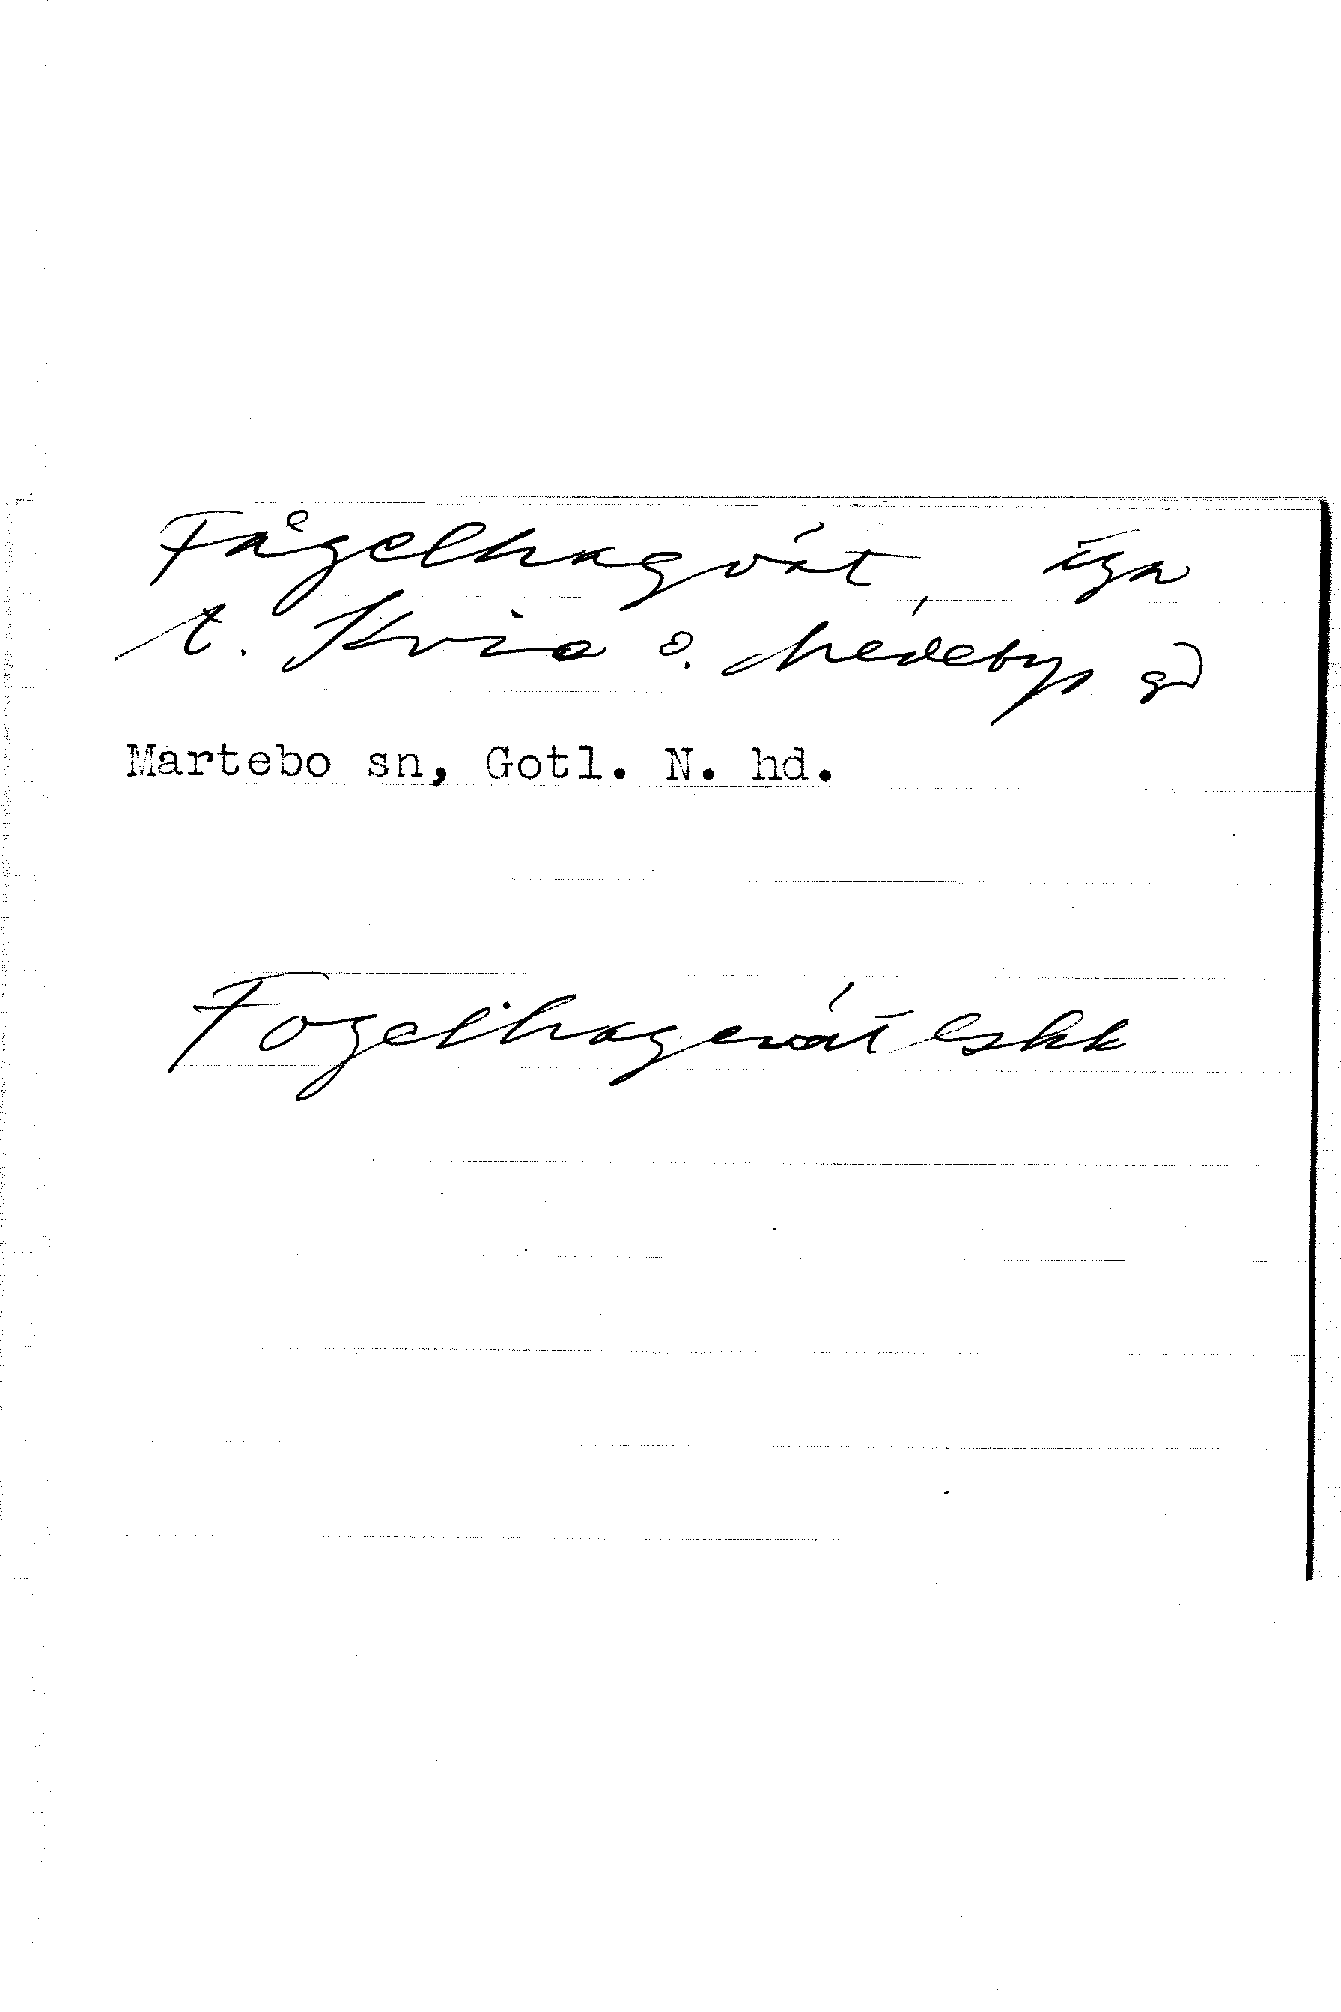 Fågelhagvät, äga
t. Kvie o. Medebys gd
Martebo sn, Gotl. N. hd.
Fogelhagevät eskk